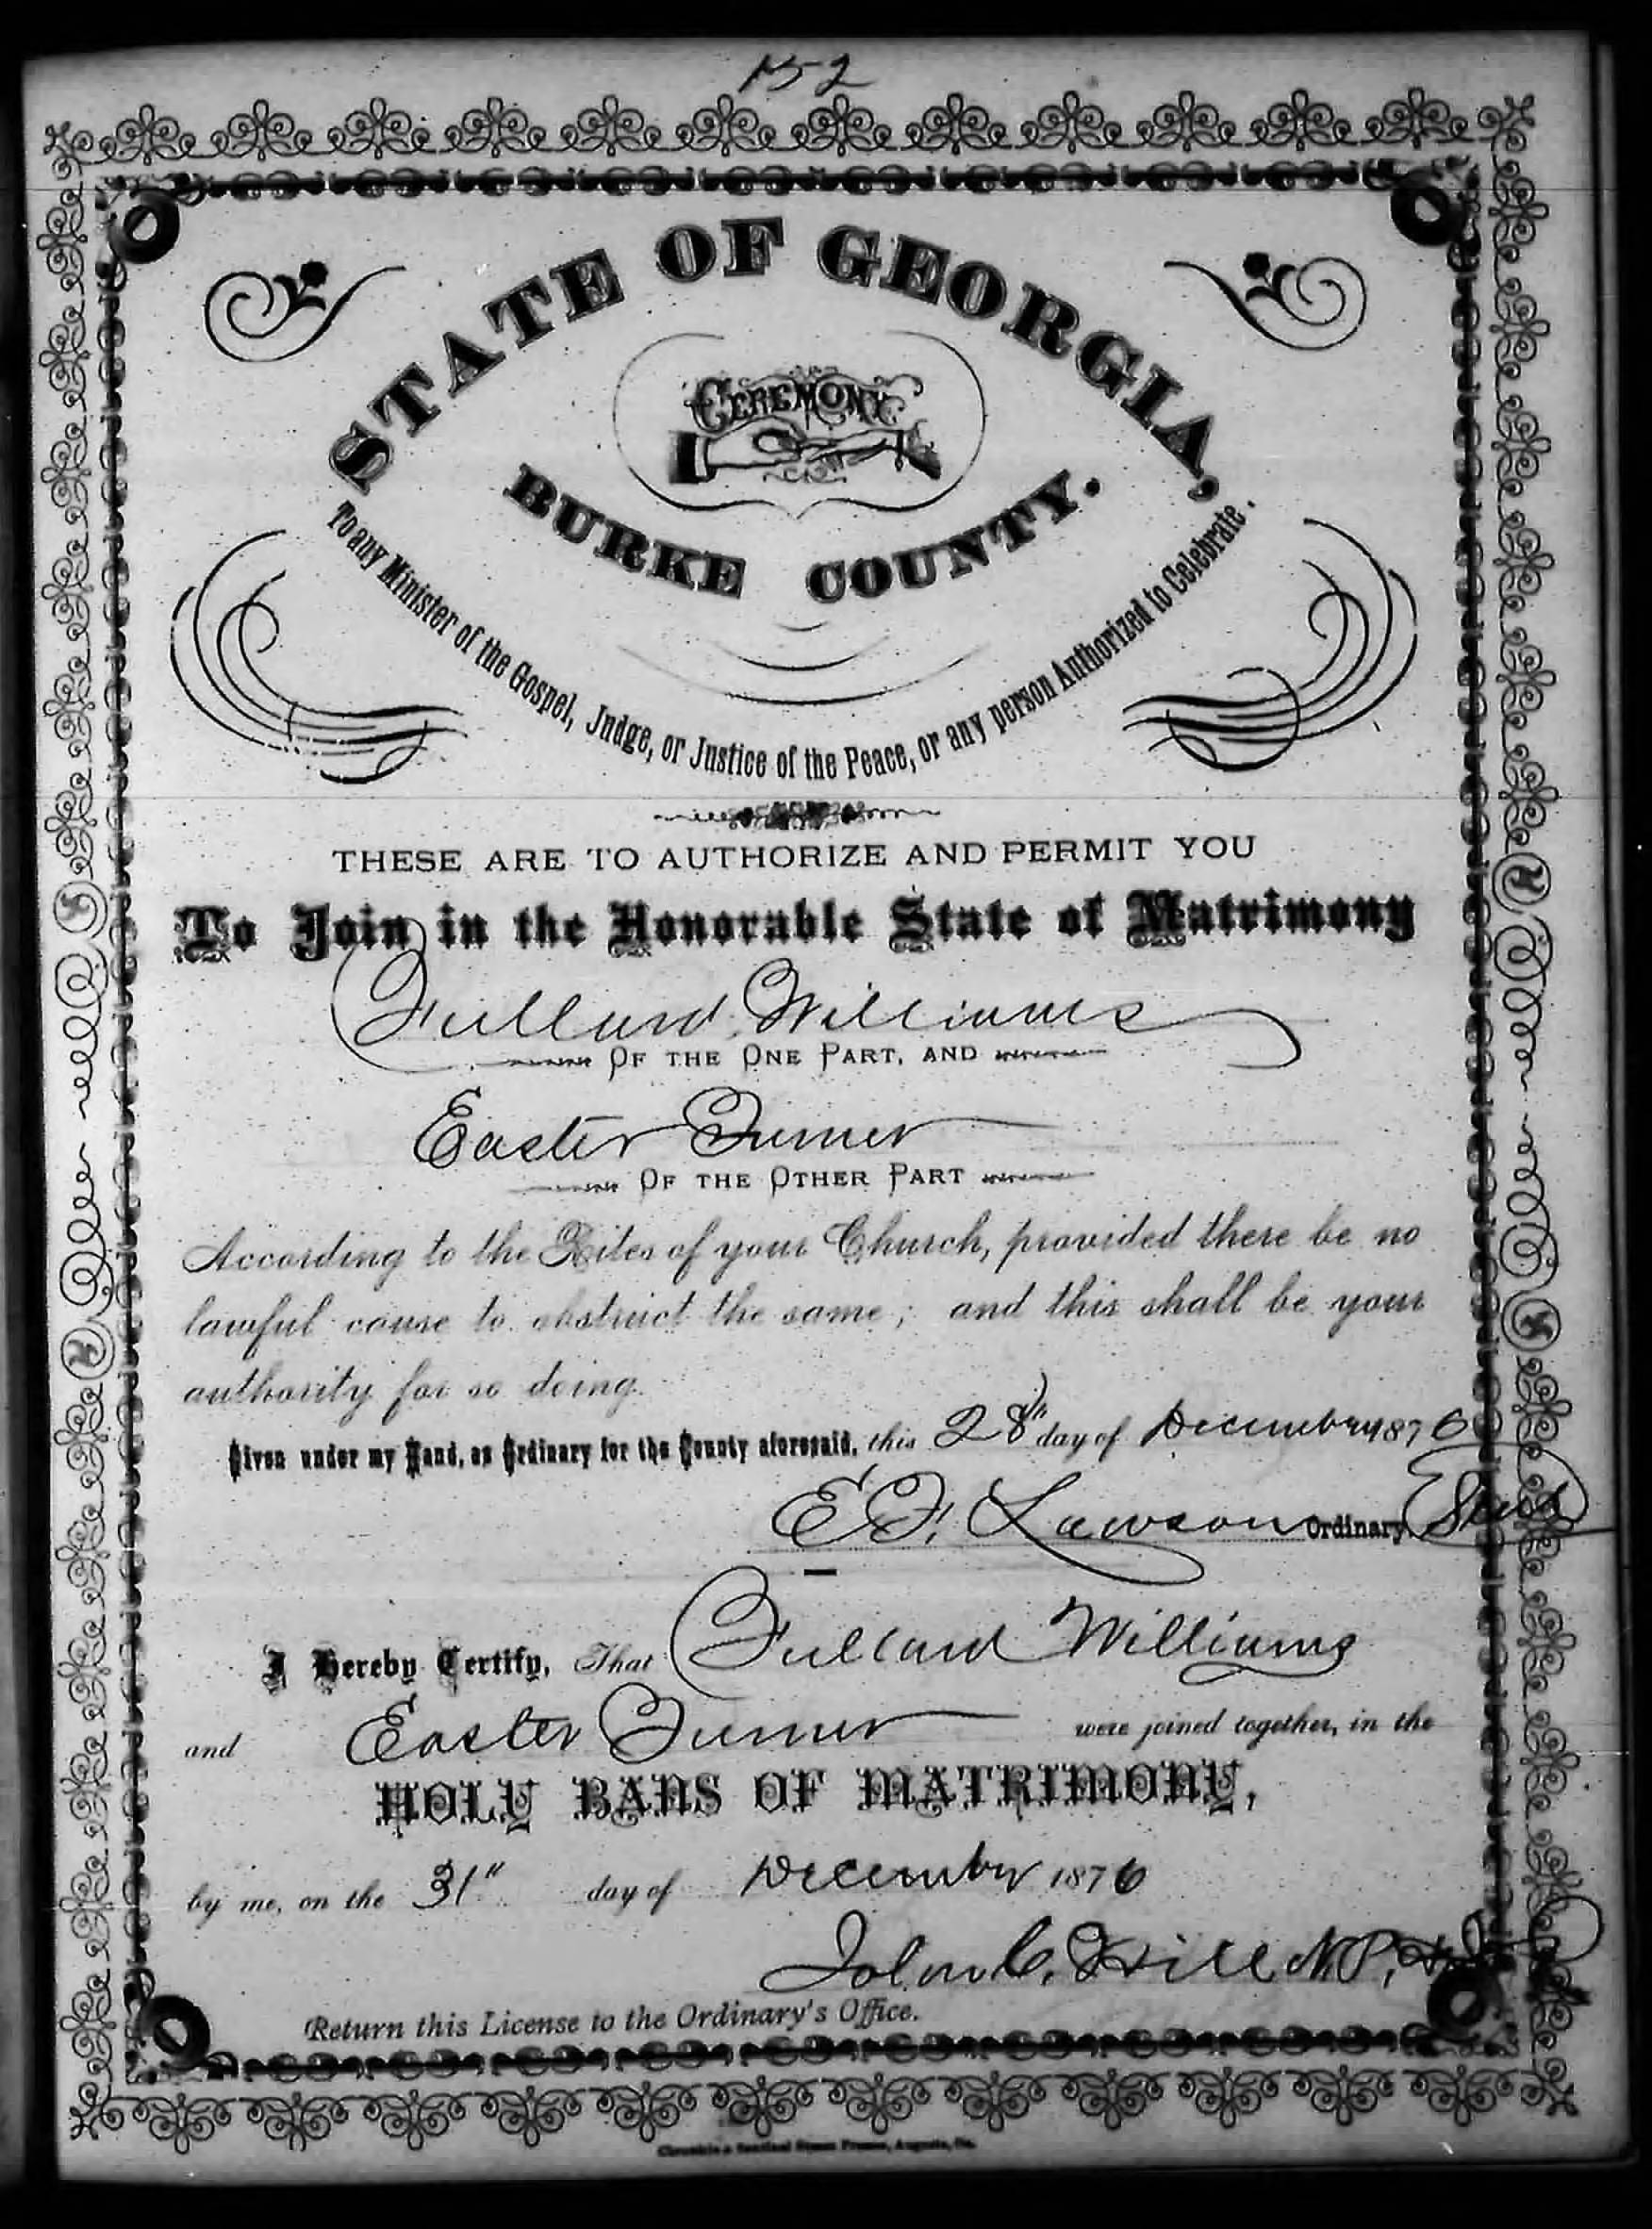 152
STATE OF GEORGIA,
CEREMONY
BURKE COUNTY.
To any Minister of the Gospel, Judge, or Justice of the Peace, or any person Authorized to Celebrate.
THESE ARE TO AUTHORIZE AND PERMIT YOU
To Join in the Honorable State of Matrimony
Fullard Williams
OF THE ONE PART, AND
Easter Turner
OF THE OTHER PART
According to the Rites of your Church, provided there be no
lawful cause to obstruct the same; and this shall be your
authority for so doing.
Given under my Hand, as Ordinary for the County aforesaid, this 28th day of December 1876
E F. Lawson Ordinary. Seal
I Hereby Certify, That Fullard Williams
and Easter Turner were joined together, in the
HOLY BANS OF MATRIMONY,
by me, on the 31" day of December 1876
John C. Hill N.P.
Return this License to the Ordinary's Office.
Chronicle & Sentinel Steam Presses, Augusta, Ga.